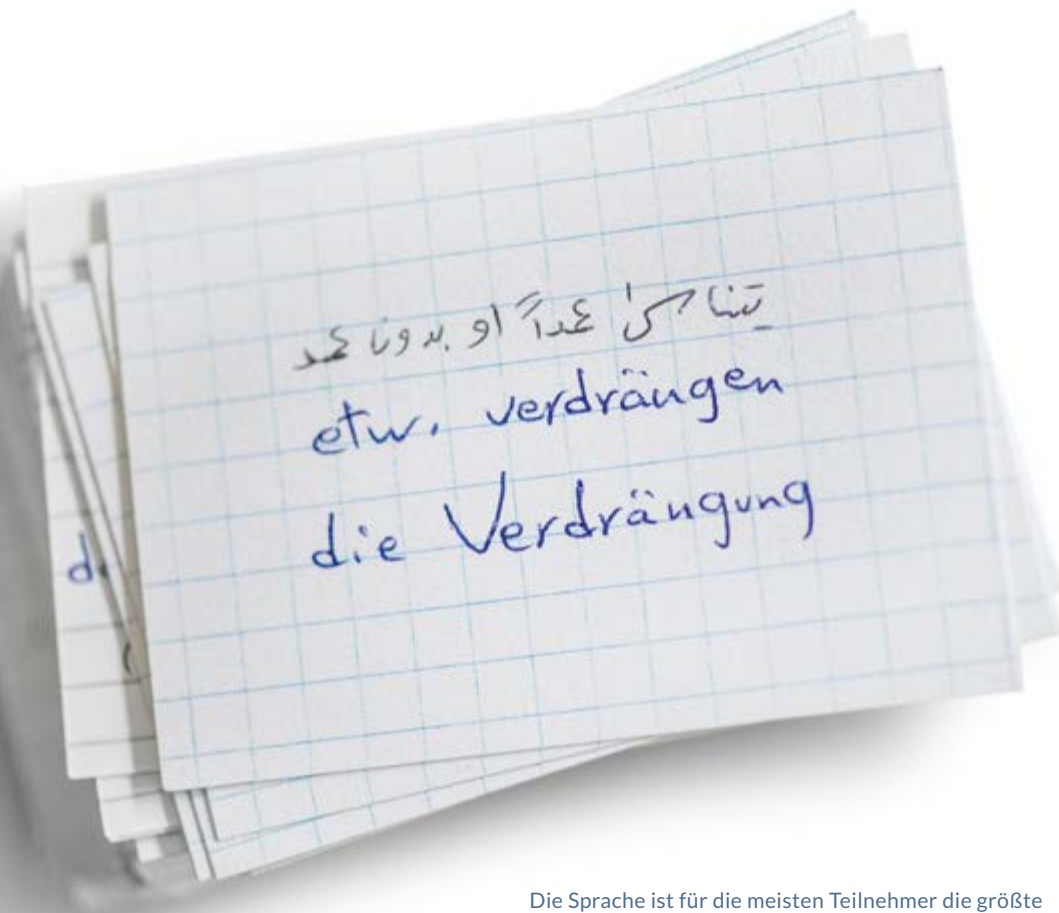 يتناسىٰ عمداً او بدون عمد
etw. verdrängen
die Verdrängung
d
Die Sprache ist für die meisten Teilnehmer die größte